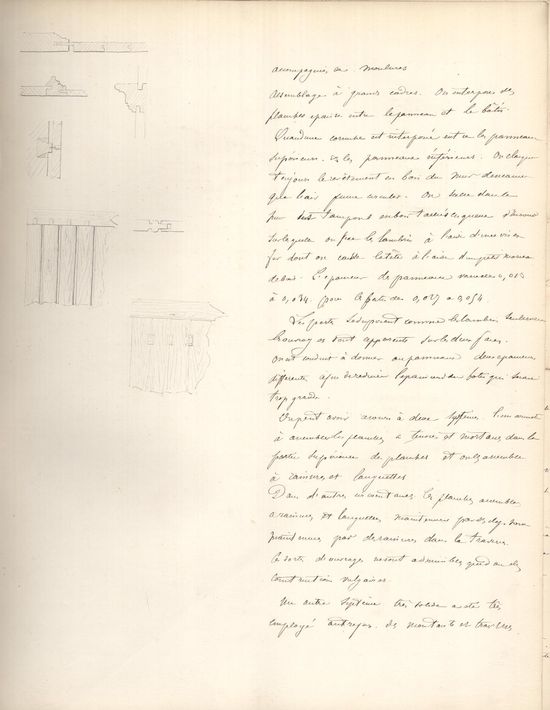 accompagnées de moulures
assemblage à grands cadres. On interpose des
planches épaisses entre le panneau et le bâtis.
Quand une cimaise est interposée entre les panneaux
supérieurs et les panneaux inférieurs. On éloigne
toujours le revêtement en bois du mur de manière
que l'air puisse circuler. On scelle dans le
mur des tampons en bois taillés en queue d'aronde
sur lesquels on fixe le lambris à l'aide d'une vis en
fer dont on cache la tête à l'aide d'un petit morceau
de bois. L'épaisseur des panneaux varie de 0,013
à 0,034 pour le bâtis de 0,027 à 0,054.
Les portes se disposent comme les lambris seulement
l'ouvrage est dont apparente sur les deux faces.
On est conduit à donner au panneau deux épaisseurs
différentes afin de
trop grande.
On peut avoir recours à deux systèmes
à assembler les planches à tenons et mortaises dans la
partie supérieure de planches et on les assemble
à rainures et languettes
Dans d'autres circonstances les planches assemblées
à rainures et languettes maintenues par des
maintenues par des rainures dans la traverse.
Ces sortes d'ouvrages ne sont admissibles que dans des
construction vulgaires.
Un autre système très solide a été très
employé autrefois. des montants et traverses